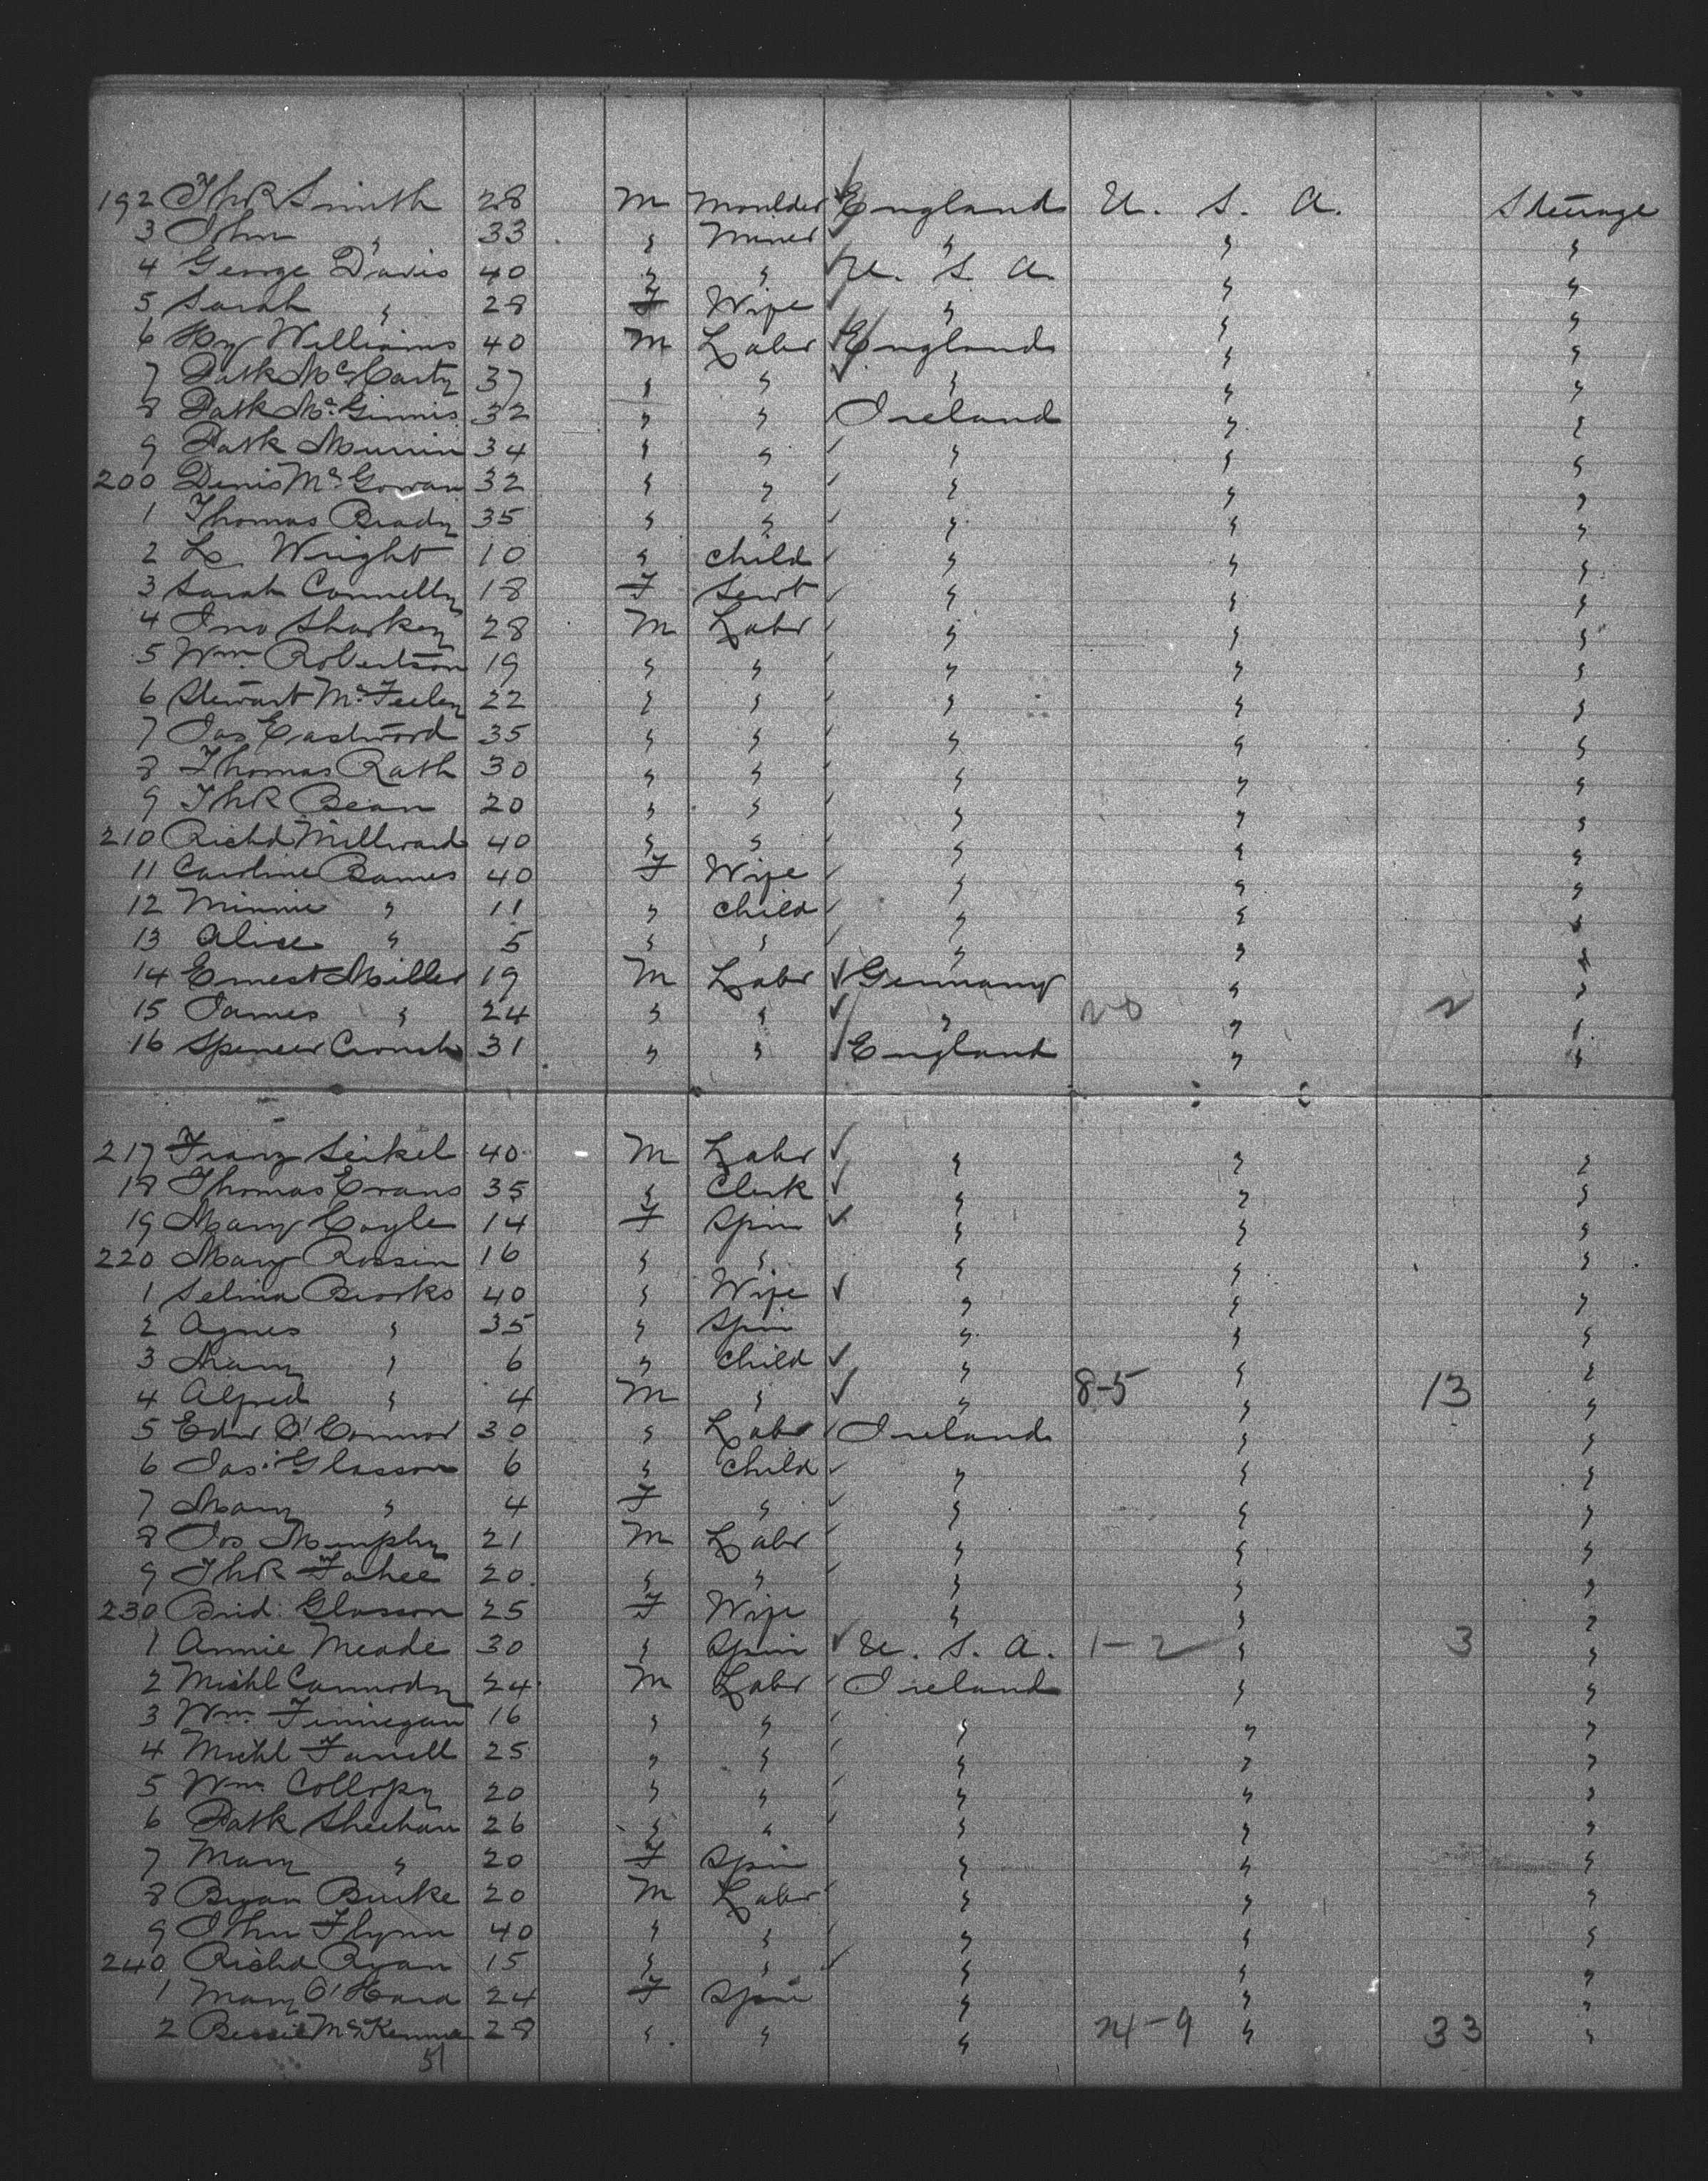 192 Thos Smith 28 M Moulder England U. S. A. Steerage
3 John " 33 " Miner " " "
4 George Davis 40 " " U. S. A " "
5 Sarah " 28 F Wife " " "
6 Hy Williams 40 M Labr England " "
7 Patk McCarty 37 " " " " "
8 Patk McGinnis 32 " " Ireland " "
9 Patk Murrin 34 " " " " "
200 Denis McGowan 32 " " " " "
1 Thomas Brady 35 " " " " "
2 L Wright 10 " Child " " "
3 Sarah Connelly 18 F Servt " " "
4 Jno Sharkey 28 M Labr " " "
5 Wm Robertson 19 " " " " "
6 Stewart McFeeley 22 " " " " "
7 Jas Eastwood 35 " " " " "
8 Thomas Rath 30 " " " " "
9 Thos Bean 20 " " " " "
210 Richd Millward 40 " " " " "
11 Caroline Barnes 40 F Wife " " "
12 Minnie " 11 " Child " " "
13 Alice " 5 " " " " "
14 Ernest Miller 19 M Labr Germany " "
15 James " 24 " " " 20 " 2 "
16 Spencer Crouch 31 " " England " "
217 Franz Seikel 40 M Labr " " "
18 Thomas Evans 35 " Clerk " " "
19 Mary Coyle 14 F Spin " " "
220 Mary Rossin 16 " " " " "
1 Selina Brooks 40 " Wife " " "
2 Agnes " 35 " Spin " " "
3 Mary " 6 " Child " " "
4 Alfred " 4 M " " 8-5 " 13 "
5 Edw O'Connor 30 " Labr Ireland " "
6 Jas. Glasson 6 " Child " " "
7 Mary " 4 F " " " "
8 Jos Murphy 21 M Labr " " "
9 Thos Fahee 20 " " " " "
230 Brid: Glasson 25 F Wife " " "
1 Annie Meade 30 " Spin U. S. A. 1-2 " 3 "
2 Michl Carmody 24 M Labr Ireland " "
3 Wm Finnegan 16 " " " " "
4 Michl Farrell 25 " " " " "
5 Wm Collopy 20 " " " " "
6 Patk Sheehan 26 " " " " "
7 Mary " 20 F Spin " " "
8 Bryan Burke 20 M Labr " " "
9 John Flynn 40 " " " " "
240 Richd Ryan 15 " " " " "
1 Mary O'Hara 24 F Spin " " "
2 Bessie McKenna 28 " " " 24-9 " 33 "
51